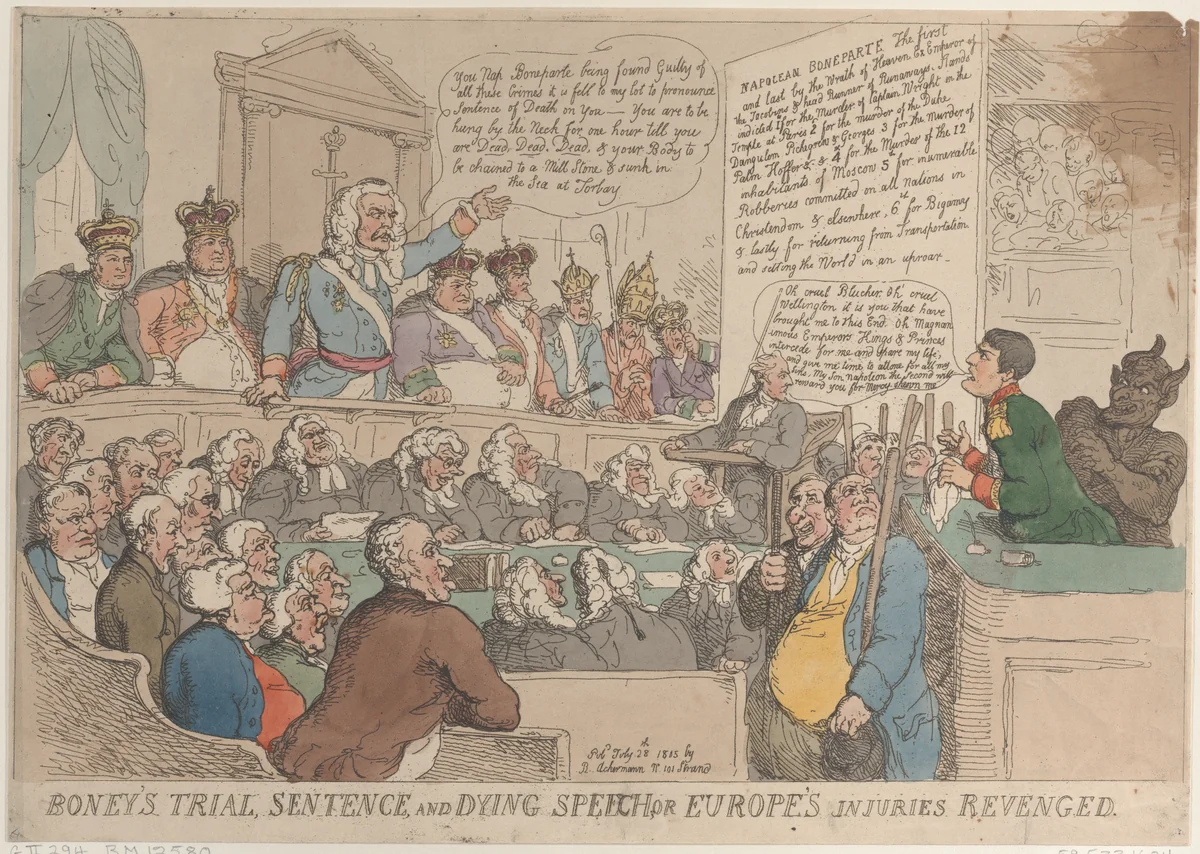 You Nap Boneparte being found Guilty of
all these Crimes it is fell to my lot to pronounce
Sentence of Death on You — You are to be
hung by the Neck for one hour till you
are Dead, Dead, Dead, & your Body to
be chained to a Mill Stone & sunk in
the Sea at Torbay
NAPOLEAN BONEPARTE The first
and last by the Wrath of Heaven Ex Emperor of
the Jacobins & head Runner of Runaways, Stands
indicted 1st for the Murder of Captain Wright in the
Temple at Paris 2 for the murder of the Duke
Dangulem Pichegrew & Georges 3 for the Murder of
Palm Hoffer &c &c 4 for the Murder of the 12
inhabitants of Moscow 5th for inumerable
Robberies committed on all Nations in
Christendom & elsewhere, 6th for Bigamy
& lastly for returning from Transportation,
and setting the World in an uproar.
Oh cruel Blucher, Oh cruel
Wellington it is you that have
brought me to this End. Oh Magnan
imous Emperors Kings & Princes
intercede for me and spare my life,
and give me time to attone for all my
Sins, My Son Napoleon the Second will
reward you for Mercy shewn me
Pubd July 28th 1815 by
R. Ackermann No 101 Strand
BONEY'S TRIAL, SENTENCE, AND DYING SPEECH, OR EUROPE'S INJURIES REVENGED.